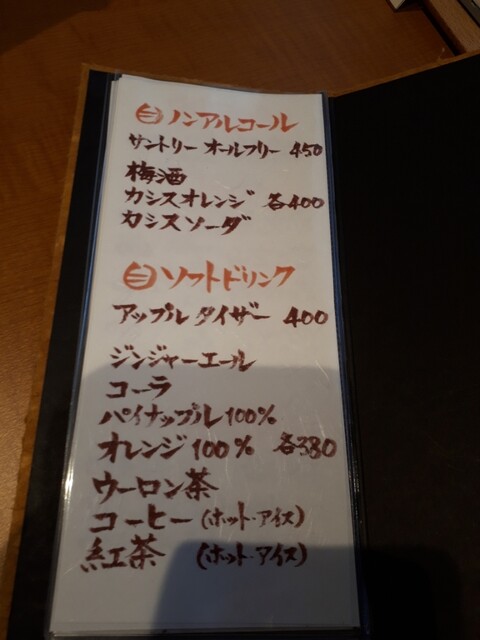 ノンアルコール
サントリー オールフリー 450
梅酒
カシスオレンジ 各400
カシスソーダ
ソフトドリンク
アップルタイザー 400
ジンジャーエール
コーラ
パイナップル100%
オレンジ100% 各380
ウーロン茶
コーヒー(ホット・アイス)
紅茶 (ホット・アイス)